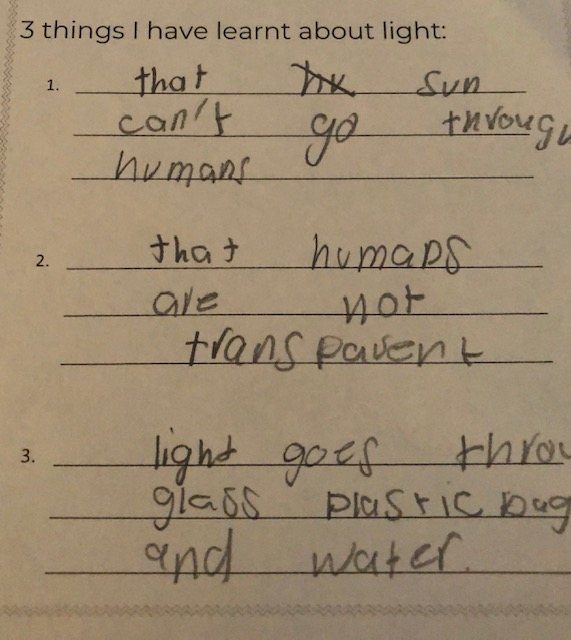 3 things I have learnt about light:
1. that sun
can't go throug
humans
2. that humans
are not
transparent
3. light goes throu
glass plastic bag
and water.